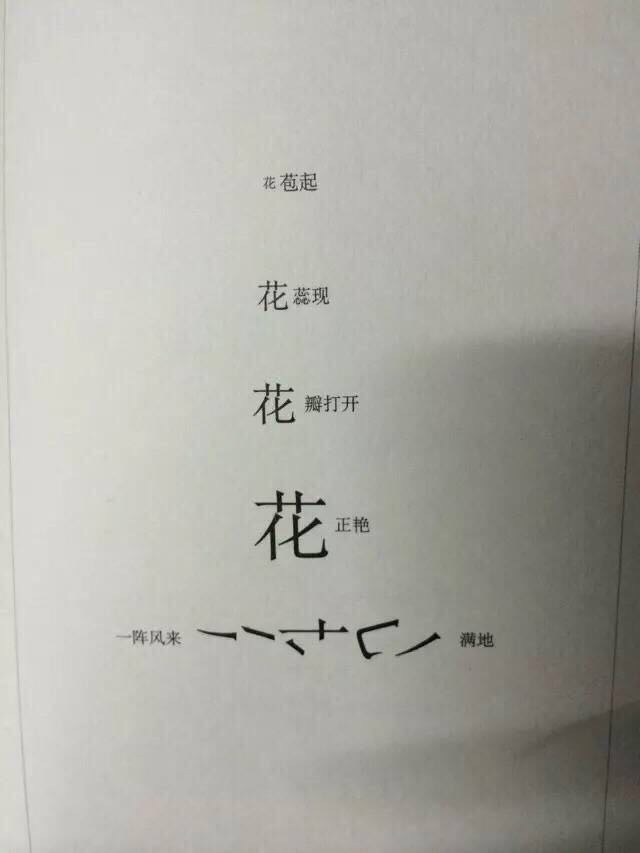 花苞起
花蕊现
花瓣打开
花正艳
一阵风来 满地